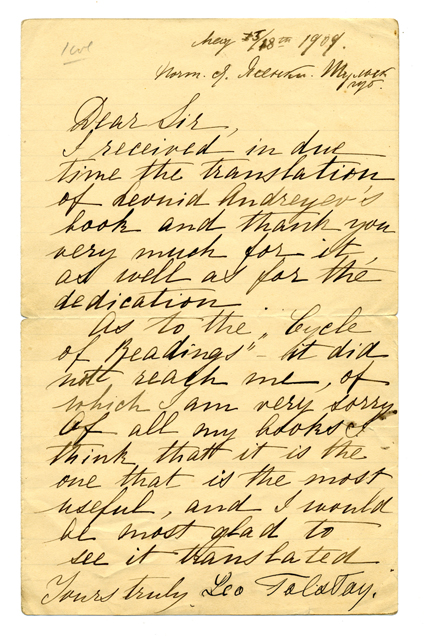 May 15/28th 1909.
Dear Sir,
I received in due
time the translation
of Leonid Andreyev's
book and thank you
very much for it,
as well as for the
dedication.
As to the „Cycle
of Readings" - it did
not reach me, of
which I am very sorry.
Of all my books I
think that it is the
one that is the most
useful, and I would
be most glad to
see it translated
Yours truly Leo Tolstoy.